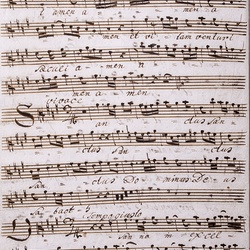 amen a men a
men et vi tam venturi
saeculi a men
men a men
Vivace
San ctus san
ctus san ctus
san ctus Do minus De us
sa baoth
Tempo giusto
O san na in excel